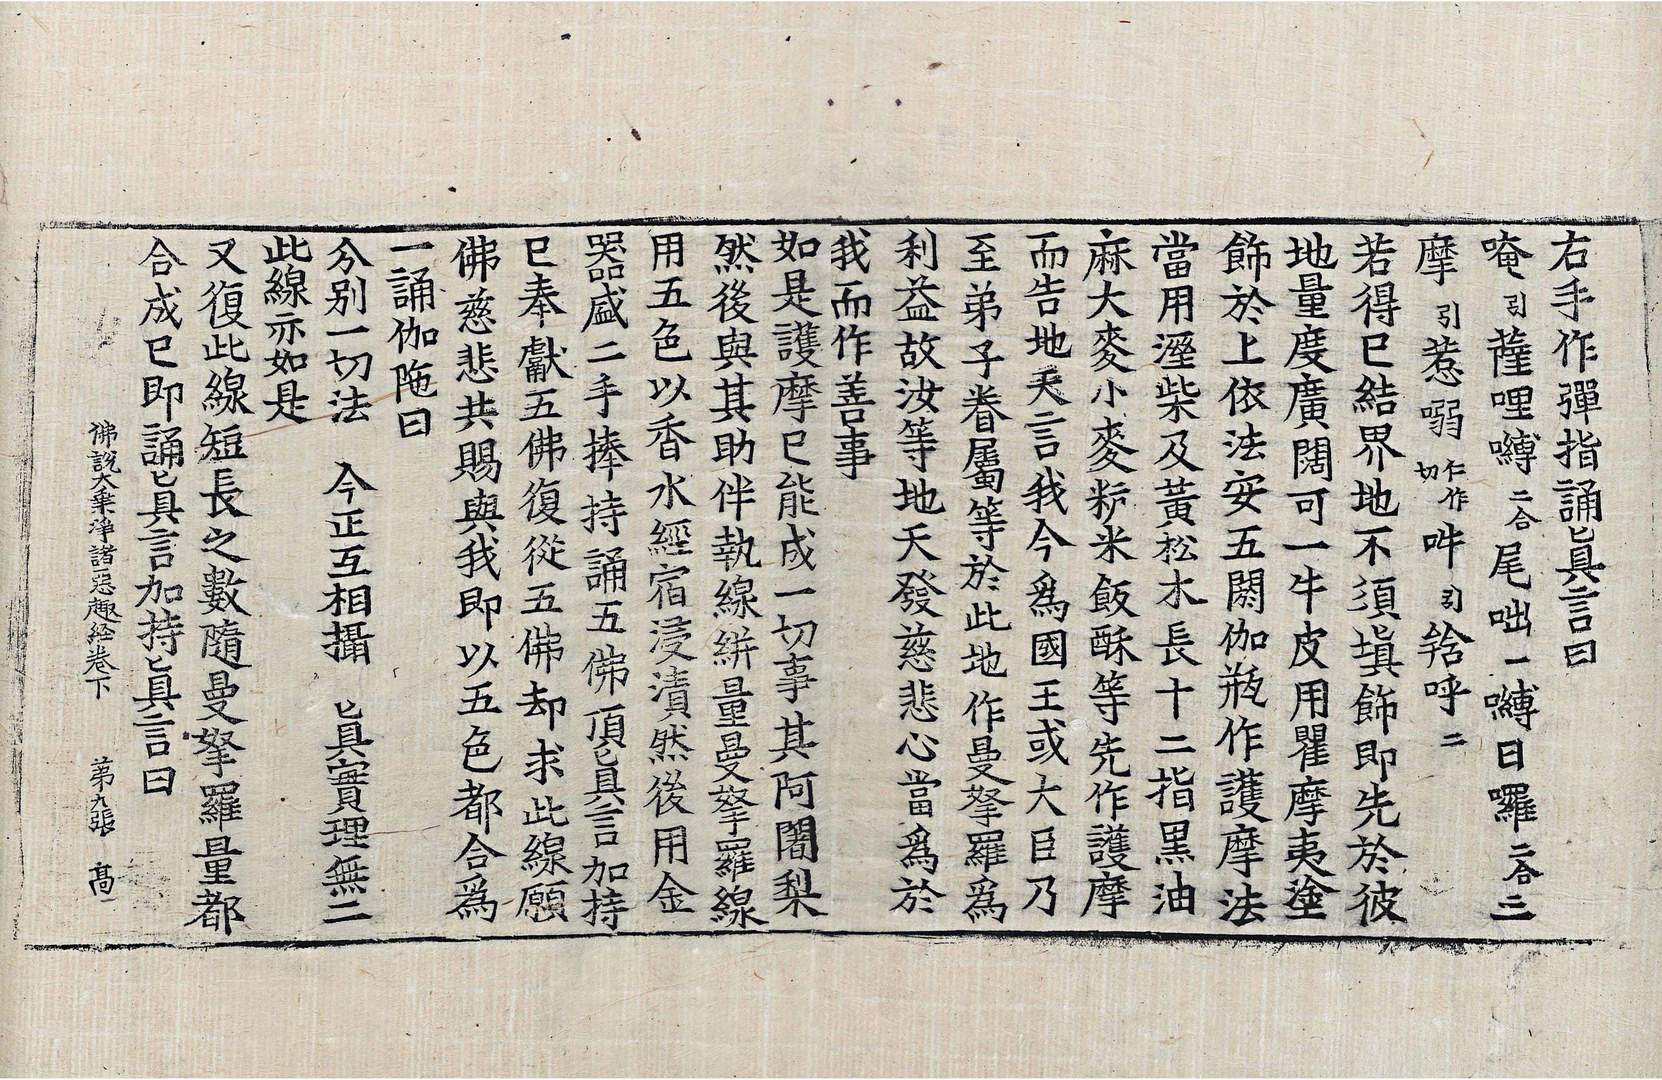 右手作彈指誦真言曰
唵引薩哩嚩二合尾咄一嚩日囉二合二
摩引惹嗯仁作切吽引發呼二
若得已結界地不須塡飾即先於彼
地量度廣闊可一牛皮用瞿摩夷塗
飾於上依法安五閼伽瓶作護摩法
當用溼柴及黃松木長十二指黑油
麻大麥小麥粆米飯酥等先作護摩
而告地天言我今爲國王或大臣乃
至弟子眷屬等於此地作曼拏羅爲
利益故汝等地天發慈悲心當爲於
我而作善事
如是護摩已能成一切事其阿闍梨
然後與其助伴執線絣量曼拏羅線
用五色以香水經宿浸漬然後用金
器盛二手捧持誦五佛頂真言加持
已奉獻五佛復從五佛却求此線願
佛慈悲共賜與我即以五色都合爲
一誦伽陁曰
分別一切法 今正互相攝 真實理無二
此線亦如是
又復此線短長之數隨曼拏羅量都
合成已即誦真言加持真言曰
佛說大乘淨諸惡趣經卷下 第九張 高